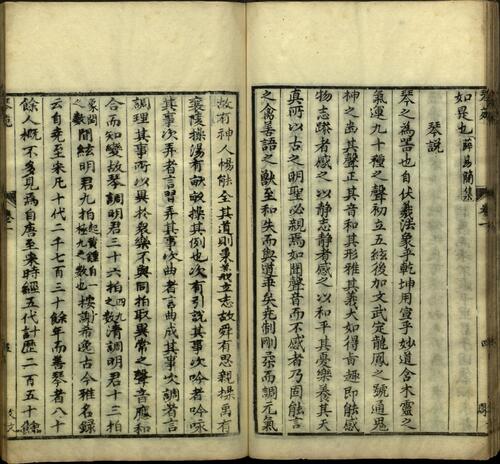 如是也薛易簡集
琴說
琴之為器也自伏羲法象乎乾坤用宣乎妙道含木靈之
氣運九十種之聲初立五絃後加文武定龍鳳之號通鬼
神之幽其聲正其音和其形雅其義大如得其趣即能感
物志躁者感之以靜志靜者感之以和平其憂樂養其天
真所以古之明聖必親焉如聞聲音而不感者乃固能言
之禽善語之獸至和失而與道乖矣克制剛柔而調元氣
故有神人暢能全其道則秉其立志故舜有思親操禹有
襄陵操湯有獻操其例也次有引說其事次吟者吟咏
其事次弄者言習弄其事次曲者言曲成其事次調者言
調理其事所以異於衆樂不與同拍取異常之聲音應和
合而知變故琴調明君三十六拍四九之數清調明君十三拍
間絃明君九拍極九之數也按謝希逸古今雅名録
云自堯至宋凡十代二千七百三十餘年而善琴者八十
餘人概不多見為自唐至宋時經五代計歷二百五十餘
琴苑
卷一